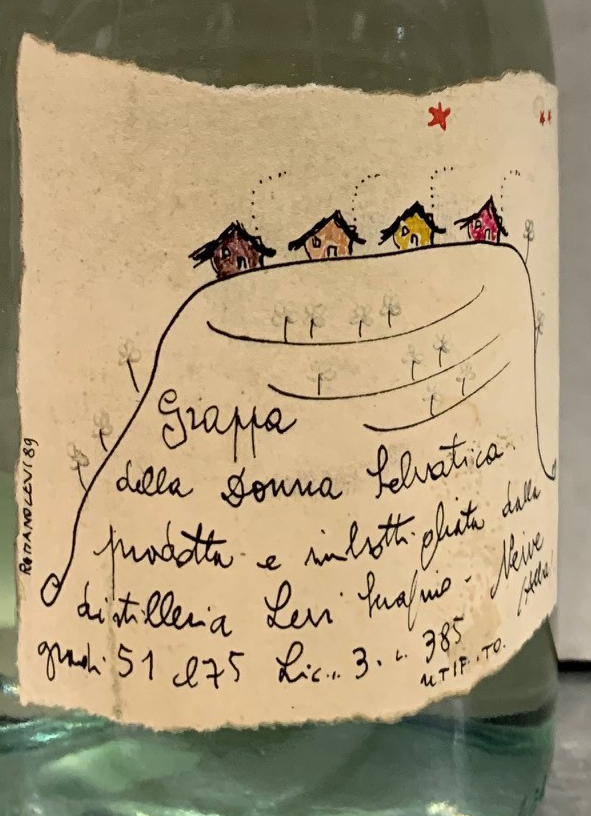 Grappa
della Donna Selvatica
prodotta e imbottigliata dalla
distilleria Levi Serafino - Neive
gradi 51 cl 75 Lic. 3. 385
UTIF. TO.
ROMANO LEVI 89